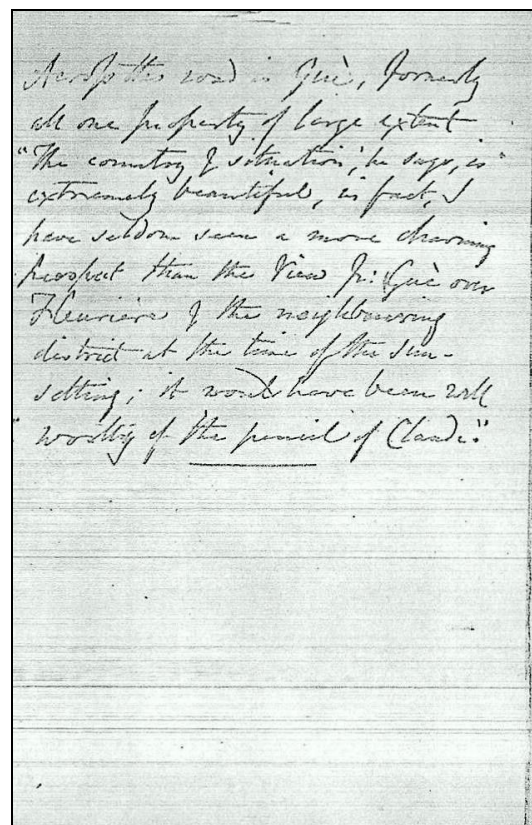 Across the road is Guè, formerly
all one property of large extent
"The country & situation', he says, "is
extremely beautiful, in fact, I
have seldom seen a more charming
prospect than the View fr: Guè over
Fleurière & the neighbouring
district at the time of the sun-
setting; it would have been well
worthy of the pencil of Claude."